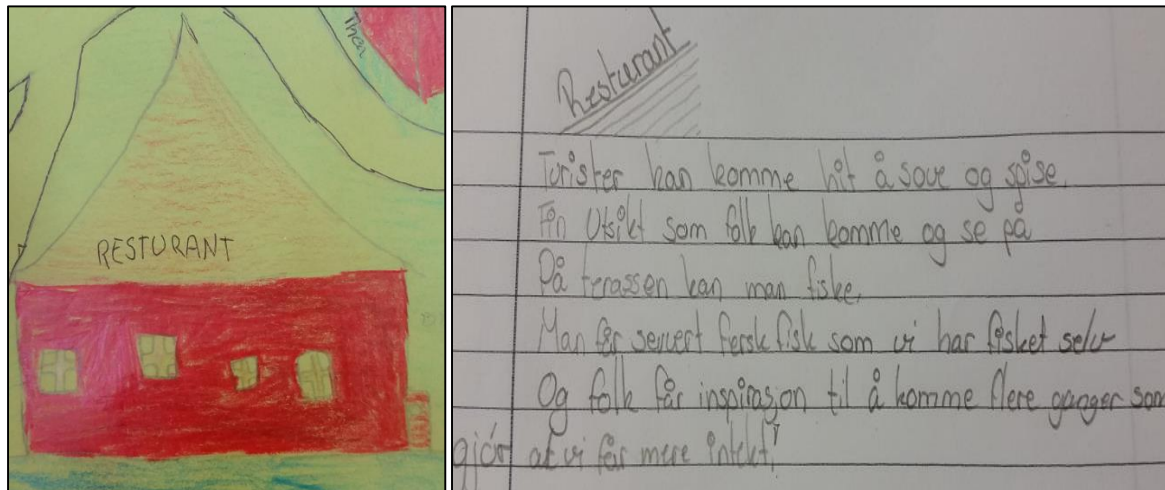 Thor
RESTURANT
Resturant
Turister kan komme hit å sove og spise.
Fin Utsikt som folk kan komme og se på
På terassen kan man fiske.
Man får servert fersk fisk som vi har fisket selv
Og folk får inspirasjon til å komme flere ganger som
gjør at vi får mere intekt!